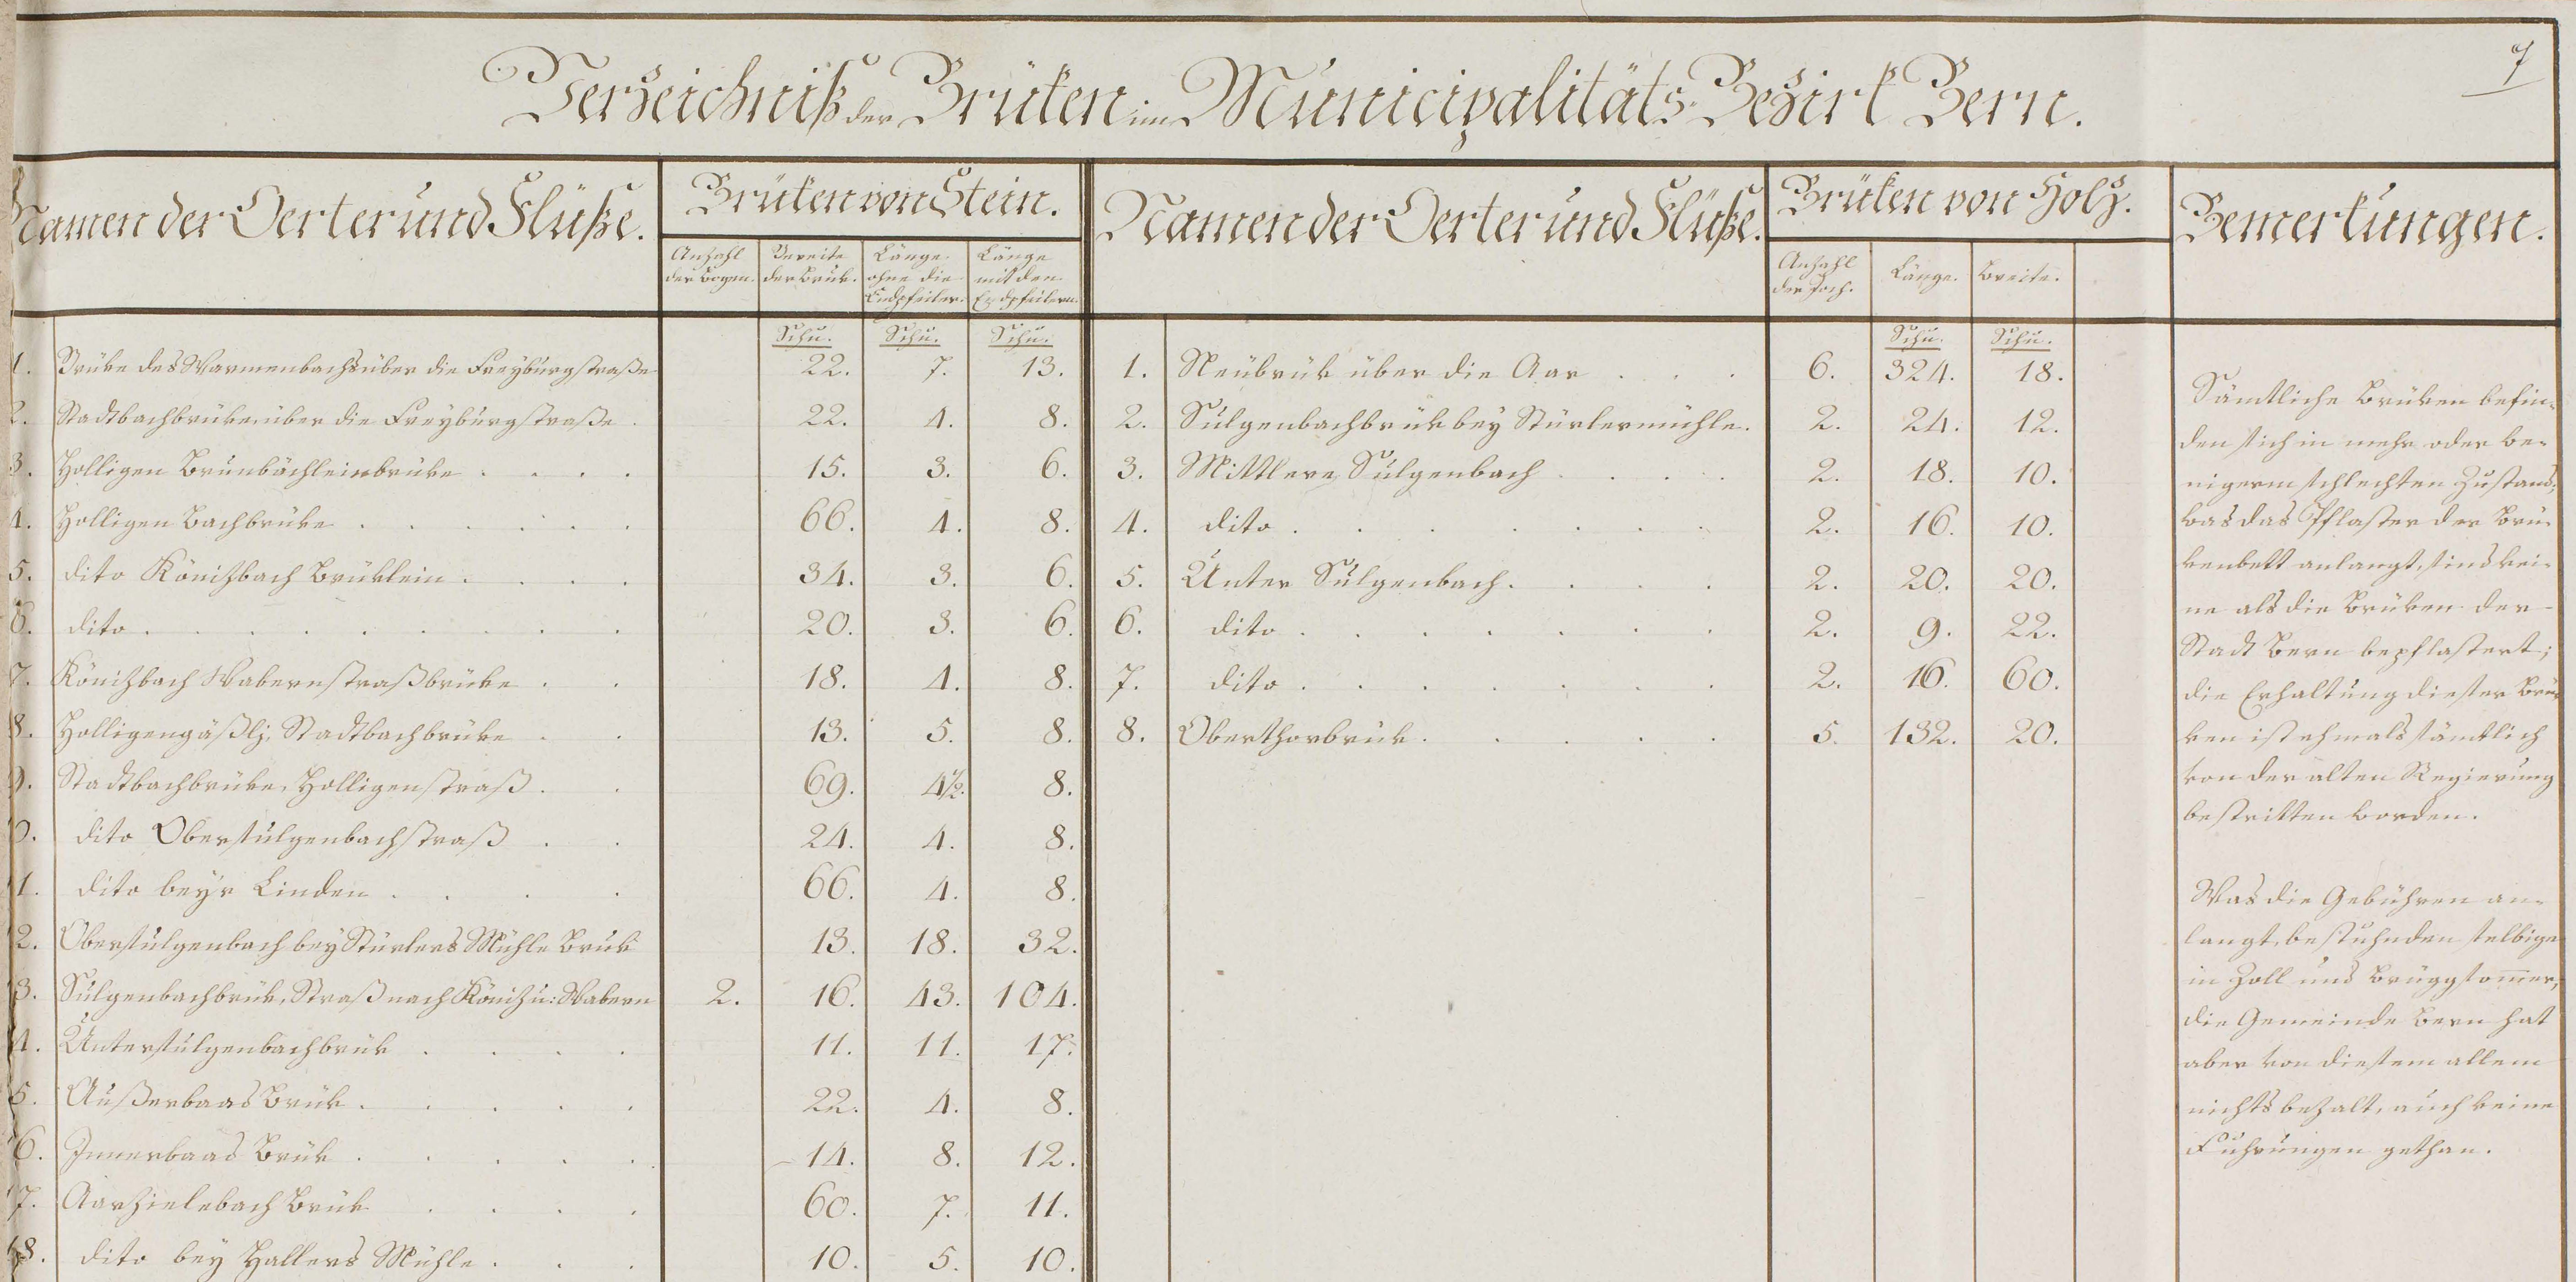 7
Verzeichniß der Brüken im Municipalitäts-Bezirk Bern.
Namen der Oerter und Flüße.
Brüken von Stein.
Namen der Oerter und Flüße.
Brüken von Holz.
Bemerkungen.
Anzahl der Bogen. Breite der Brük. Länge ohne die Endpfeiler. Länge mit den Endpfeilern.
Anzahl der Joch. Länge. Breite.
Schu. Schu. Schu.
1. Brüke des Warmenbachs über die Freyburgstraße 22. 7. 13.
2. Stadtbachbrüke, über die Freyburgstraße . 22. 4. 8.
3. Holligen Brunbächleinbrüke . . . . 15. 3. 6.
4. Holligen Bachbrüke . . . . . . 66. 4. 8.
5. dito Könizbach Brüklein . . . . 34. 3. 6.
6. dito . . . . . . . . 20. 3. 6.
7. Könizbach Wabernstraßbrüke . . 18. 4. 8.
8. Holligengäßlj, Stadtbachbrüke . . 13. 5. 8.
9. Stadtbachbrüke, Holligenstraß . . 69. 4½. 8.
0. dito Obersulgenbachstraß . . 24. 4. 8.
11. dito bey'r Linden . . . . 66. 4. 8.
2. Obersulgenbach bey Stürlers Mühle Brük 13. 18. 32.
3. Sulgenbachbrük, Straß nach Köniz u: Wabern 2. 16. 43. 104.
4. Untersulgenbachbrük . . . . 11. 11. 17.
5. Außerbaas Brük . . . . . 22. 4. 8.
6. Innerbaas Brük . . . . . 14. 8. 12.
7. Aarzielebach Brük . . . . 60. 7. 11.
18. dito bey Hallers Mühle . . . 10. 5. 10.
Schu. Schu.
1. Neübrük über die Aar . . . 6. 324. 18.
2. Sulgenbachbrük bey Stürlermühle. 2. 24. 12.
3. Mittlere Sulgenbach . . . . 2. 18. 10.
4. dito . . . . . . . 2. 16. 10.
5. Unter Sulgenbach . . . . 2. 20. 20.
6. dito . . . . . . . 2. 9. 22.
7. dito . . . . . . . 2. 16. 60.
8. Oberthorbrük . . . . . 5. 132. 20.
Sämtliche Brüken befin-
den sich in mehr oder we-
nigerm schlechten Zustand;
was das Pflaster der Brü-
kenbett anlangt, sind kei-
ne als die Brüken der
Stadt Bern bepflastert;
die Erhaltung dieser Brü-
ken ist ehmals sämtlich
von der alten Regierung
bestritten worden.
Was die Gebühren an-
langt, bestuhnden selbige
in Zoll und Brüggsomer,
die Gemeinde Bern hat
aber von diesem allem
nichts bezalt, auch keine
Fuhrungen gethan.